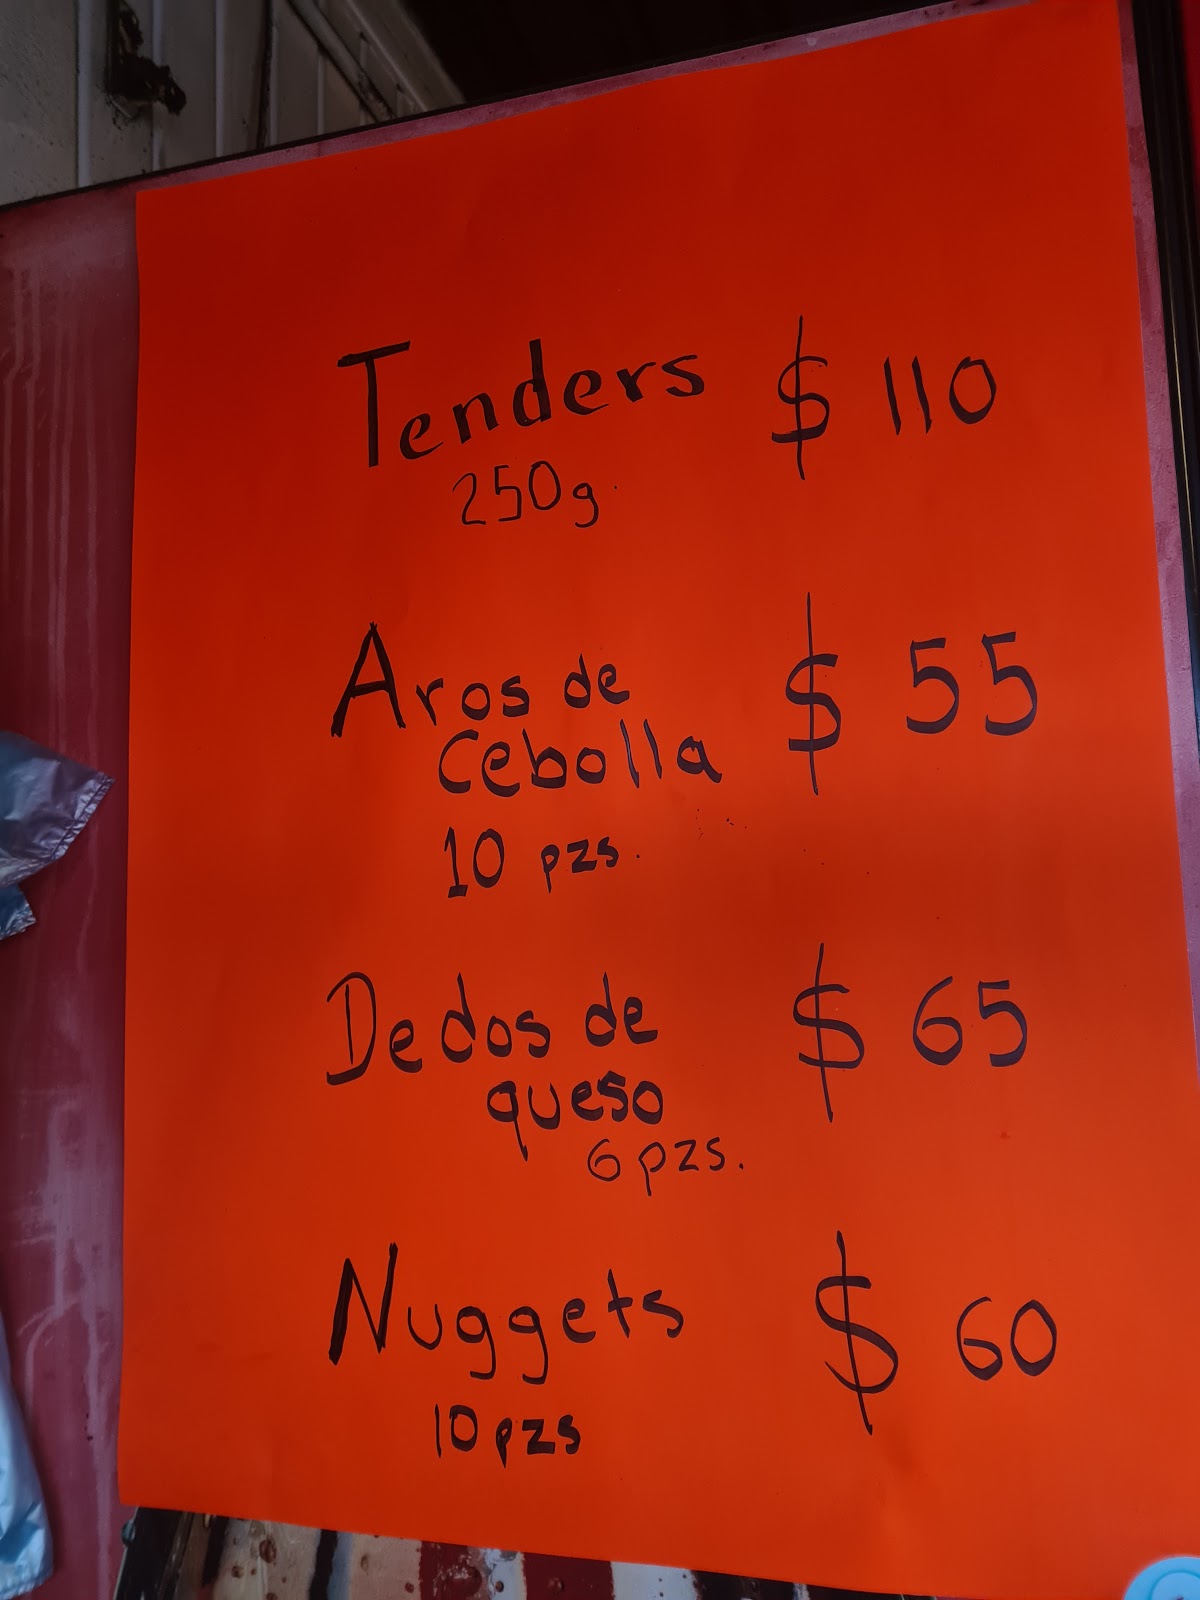 Tenders $ 110
250g.
Aros de $ 55
cebolla
10 pzs.
Dedos de $ 65
queso
6 pzs.
Nuggets $ 60
10 pzs